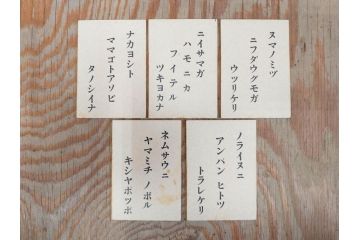 ヌマノミヅ
ニフダウグモガ
ウツリケリ
ニイサマガ
ハモニカ
フイテル
ツキヨカナ
ナカヨシト
ママゴトアソビ
タノシイナ
ノライヌニ
アンパン ヒトツ
トラレケリ
ネムサウニ
ヤマミチ ノボル
キシヤポツポ